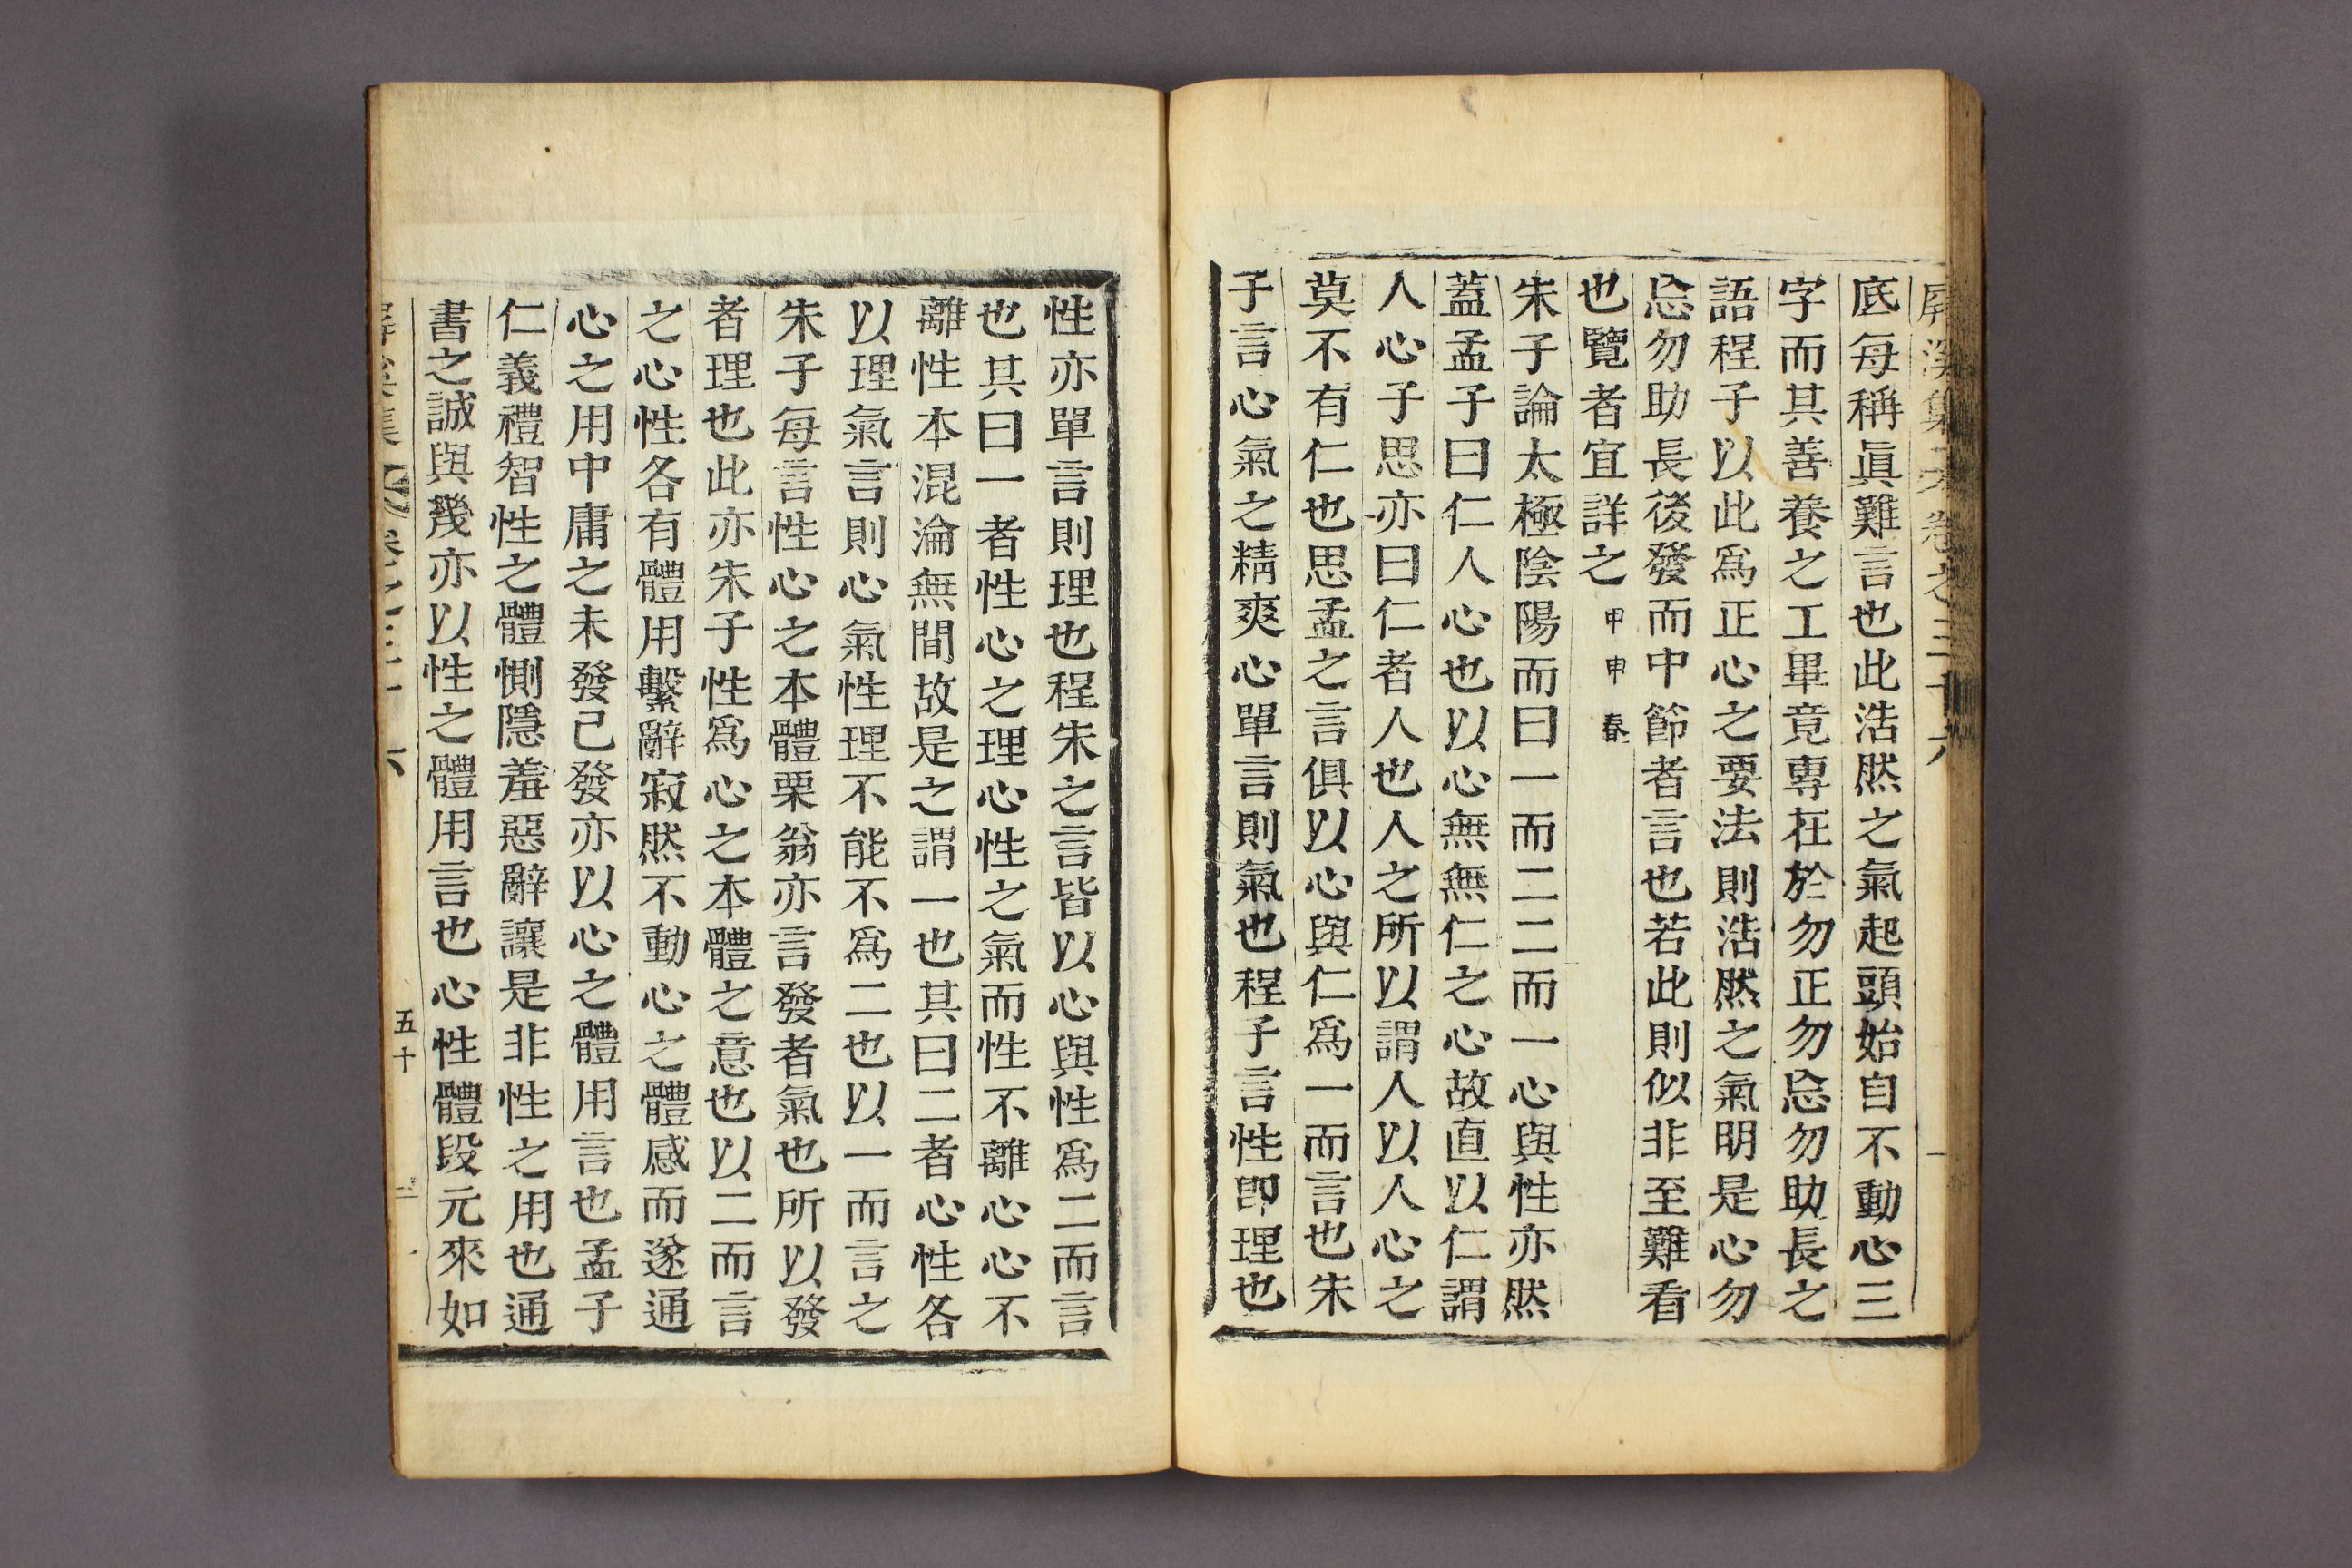 屛溪集 卷之三十六
底每稱眞難言也此浩然之氣起頭始自不動心三
字而其善養之工畢竟專在於勿正勿忘勿助長之
語程子以此爲正心之要法則浩然之氣明是心勿
忘勿助長後發而中節者言也若此則似非至難看
也覽者宜詳之甲申春
朱子論太極陰陽而曰一而二二而一心與性亦然
蓋孟子曰仁人心也以心無無仁之心故直以仁謂
人心子思亦曰仁者人也人之所以謂人以人心之
莫不有仁也思孟之言俱以心與仁爲一而言也朱
子言心氣之精爽心單言則氣也程子言性卽理也
性亦單言則理也程朱之言皆以心與性爲二而言
也其曰一者性心之理心性之氣而性不離心心不
離性本混淪無間故是之謂一也其曰二者心性各
以理氣言則心氣性理不能不爲二也以一而言之
朱子每言性心之本體栗翁亦言發者氣也所以發
者理也此亦朱子性爲心之本體之意也以二而言
之心性各有體用繫辭寂然不動心之體感而遂通
心之用中庸之未發已發亦以心之體用言也孟子
仁義禮智性之體惻隱羞惡辭讓是非性之用也通
書之誠與幾亦以性之體用言也心性體段元來如
屛溪集 卷之三十六 五十